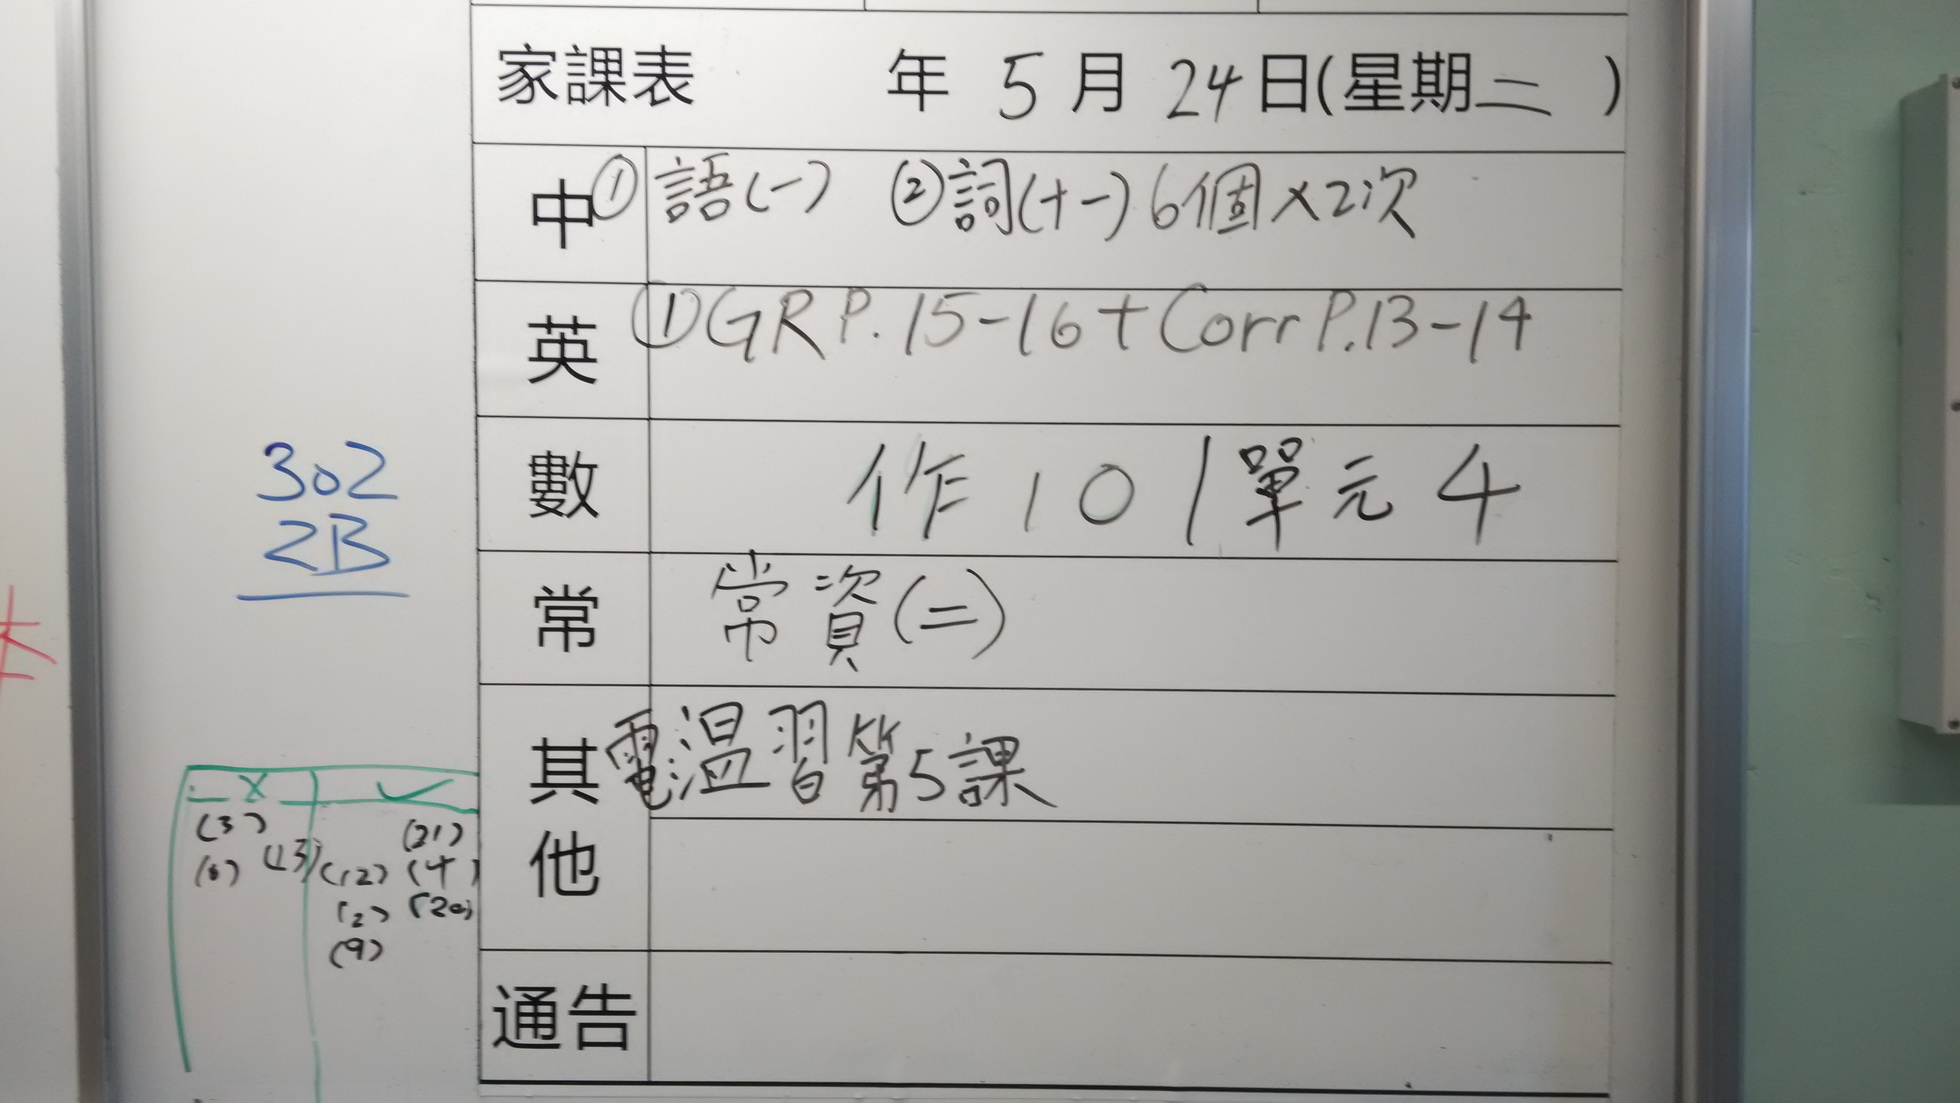 家課表 年 5 月 24 日(星期二 )
中 ①語(一) ②詞(十一)6個×2次
英 ①GR P.15-16+Corr P.13-14
數 作101單元4
常 常資(二)
其他 電溫習第5課
通告
302
2B
× ✓
(3) (21)
(13) (12) (4)
(2) (20)
(9)